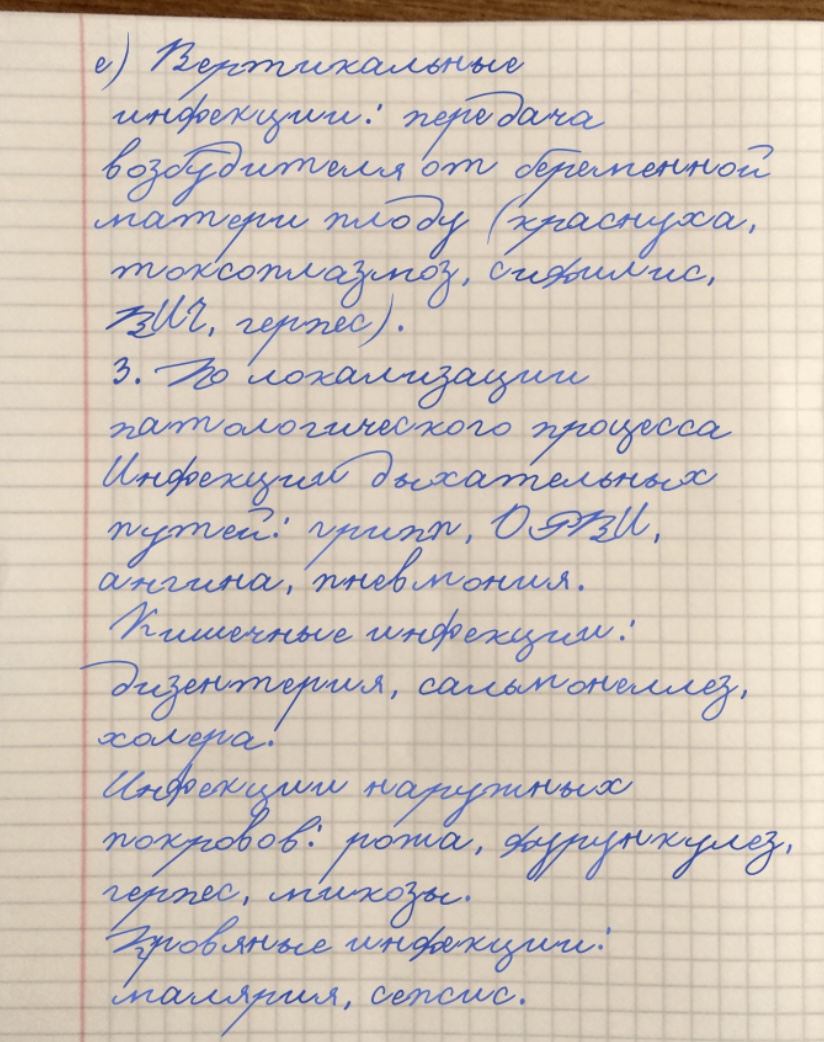 е) Вертикальные
инфекции: передача
возбудителя от беременной
матери плоду (краснуха,
токсоплазмоз, сифилис,
ВИЧ, герпес).
3. По локализации
патологического процесса
Инфекции дыхательных
путей: грипп, ОРВИ,
ангина, пневмония.
Кишечные инфекции:
дизентерия, сальмонеллез,
холера.
Инфекции наружных
покровов: рожа, фурункулез,
герпес, микозы.
Кровяные инфекции:
малярия, сепсис.